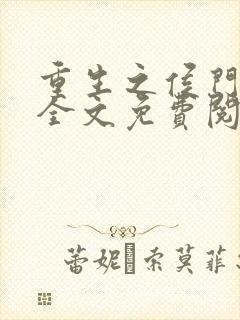 重生之侯門
全文免費閱
蕾妮·索莫菲